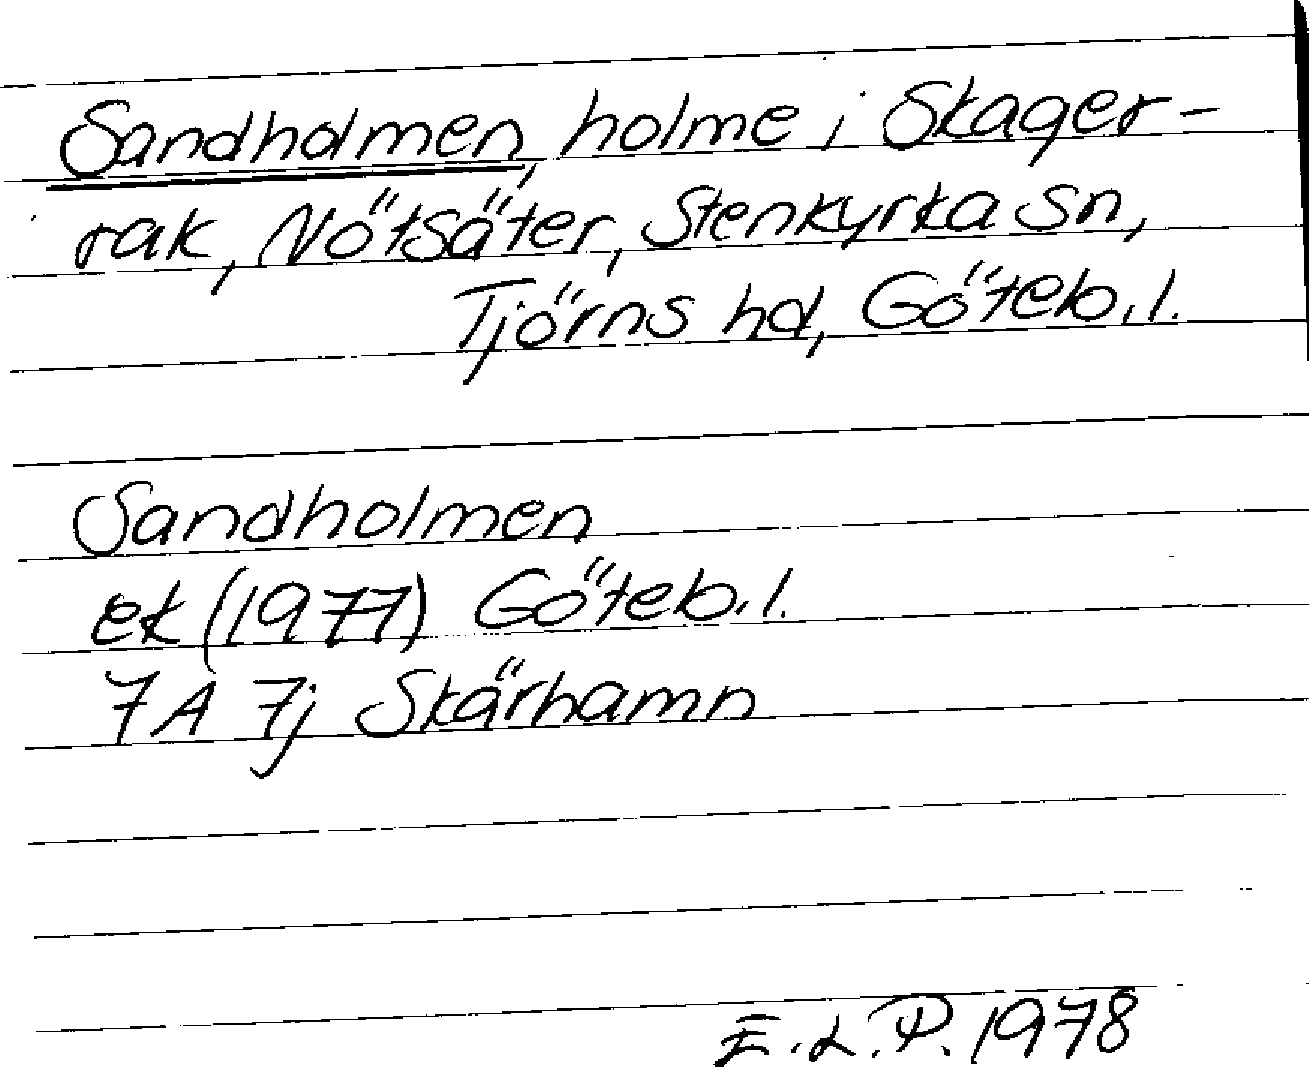 Sandholmen, holme i Skager-
rak, Nötsäter, Stenkyrka sn,
Tjörns hd, Göteb.l.
Sandholmen
ek (1977) Göteb.l.
7A 7j Skärhamn
E.L.P. 1978